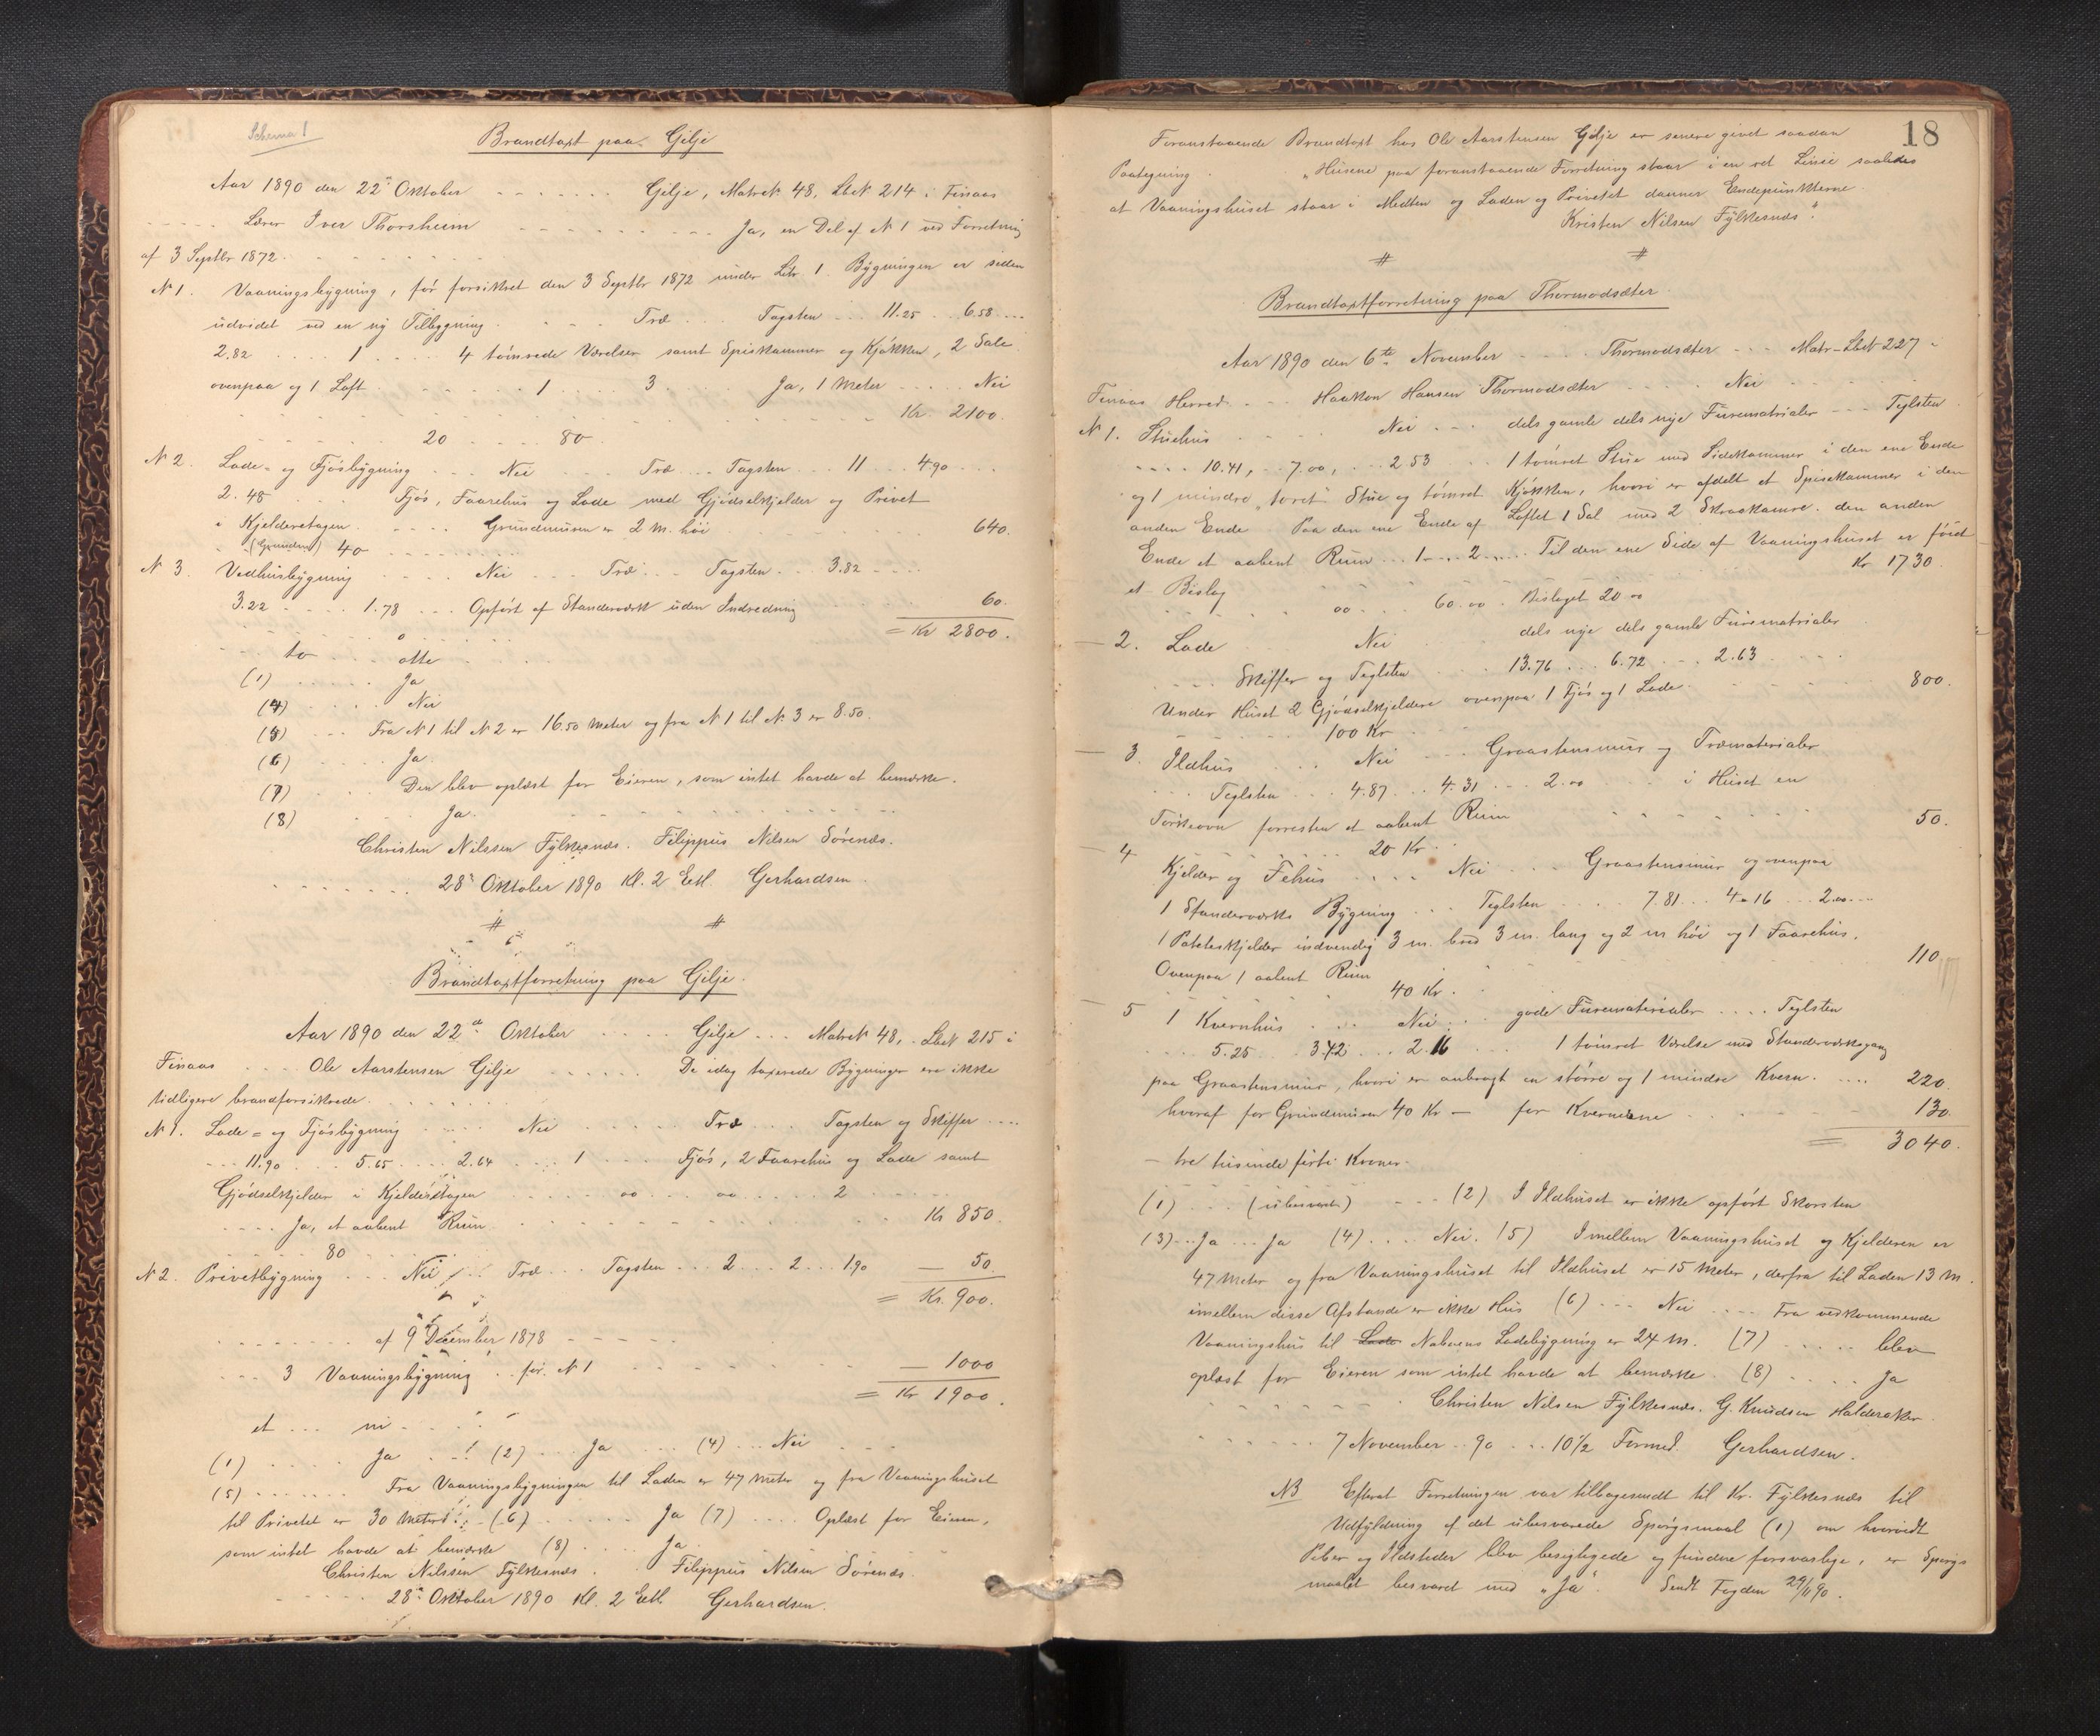 Schema 1
Brandtaxt paa Gilje
Aar 1890 den 22' Oktober - - - - - - - Gilje, Matr.N. 48, LbeN 214 i Finaas
- - - - - Lærer Iver Thorsheim - - - - - - - - - Ja, en Del af N 1 ved Forretning
af 3 Septbr 1872. - - - - - -
N 1. Vaaningsbygning, før forsikret den 3 Septbr 1872 under Litr. 1. Bygningen er siden
udvidet ved en ny Tilbygning. - - - Træ . . . Tagsten . . . 11.25 . . . 6.58 . . .
2.82 . . . . 1 . . . . 4 tømrede Værelser samt Spiskammer og Kjøkken, 2 Sale
ovenpaa og 1 Loft. - - - - - - 1 . . . . 3 . . . . Ja, 1 Meter - - - . Nei
Kr. 2100.
- - - - - - 20 - - - - - 80 -
N 2. Lade- og Fjøsbygning - - - Nei - - - Træ . . . Tagsten . . . 11 . . . 4.90 . . .
2.48 . . . Fjøs, Faarehus og Lade med Gjødselkjelder og Privet
i Kjelderetagen. - - - - Grundmuren er 2 m. høi - - - - - - 640.
(Grunden) 40 - - - - - -
N 3. Vedhusbygning - - - - Nei - - - Træ - - - Tagsten - - - 3.82 - - -
3.22 - - - - 1.78 - - - Opført af Standerværk uden Indredning 60.
= Kr 2800.
- - - to - - - otte - - -
(1) - - - - - Ja
(4) - - - - - Nei
(5) - - - Fra N 1 til N 2 er 16.50 Meter og fra N 1 til N. 3 er 8.50.
(6) - - - - Ja
(7) - - - - Den blev oplæst for Eieren, som intet havde at bemærke.
(8) - - - - - Ja.
Christen Nilssen Fylkesnæs. Filippus Nilsen Sørenæs.
- - - - - - - 28' Oktober 1890 Kl. 2 Eftl. Gerhardsen.
# #
Brandtaxtforretning paa Gilje.
Aar 1890 den 22de Oktober - - - - - Gilje - - - Matr.N 48, LbeN 215 i
Finaas - - - - Ole Aarstensen Gilje - - - - - - De idag taxerede Bygninger ere ikke
tidligere brandforsikrede. - - - - - -
N 1. Lade- og Fjøsbygning - - - - Nei - - - - - Træ - - - - Tagsten og Skiffer - - - -
- - - 11.90 - - - - 5.65 - - - - 2.64 - - - - 1 - - - - Fjøs, 2 Faarehus og Lade samt
Gjødselkjelder i Kjelderetagen - - - - - oo - - - - oo - - - - 2 - - - -
- - - - Ja, et aabent Rum. - - - - - - Kr 850.
- - - - - 80 - - -
N 2. Privetbygning - - - Nei - - - Træ - - - Tagsten - - - 2 - - - 2 - - - 1.90 — 50.
= Kr. 900.
- - - - - - - af 9 December 1878 - - - - -
- - - 3 Vaaningsbygning - - før N 1 - - - - - - - — 1000
= Kr 1900.
et - - - ni - - - -
(1) - - - - - Ja - - - (2) - - - Ja - - - - (4) - - - Nei
(5) - - - - - - - Fra Vaaningsbygningen til Laden er 47 Meter og fra Vaaningshuset
til Privetet er 30 Meter. - - (6) - - - - - - - Ja (7) - - - - Oplæst for Eieren,
som intet havde at bemærke (8) - - - - Ja
Christen Nilssen Fylkesnæs. Filippus Nilsen Sørenæs.
- - - - - - 28' Oktober 1890 Kl. 2 Eftl. Gerhardsen.
18
Foranstaaende Brandtaxt hos Ole Aarstensen Gilje er senere givet saadan
Paategning. „Husene paa foranstaaende Forretning staar i en ret Linie saaledes
at Vaaningshuset staar i Midten og Laden og Privetet danner Endepunkterne.
Kristen Nilsen Fylkesnæs."
# #
Brandtaxtforretning paa Thormodsæter.
Aar 1890 den 6te November - - - - Thormodsæter - - - Matr-LbeN 227 -
Finaas Herred - - - Haakon Hansen Thormodsæter - - - - - Nei - - - -
N 1. Stuehus - - - - - Nei - - - dels gamle dels nye Furematrialer - - - Teglsten
- - - - 10.41, - - 7.00, - - - 2.53 - - - 1 tømret Stue med Sidekammer i den ene Ende
og 1 mindre tømret Stue og tømret Kjøkken, hvori er afdelt et Spisekammer i den
anden Ende. Paa den ene Ende af Loftet 1 Sal med 2 Skraakamre. den anden
Ende et aabent Rum - - - 1 - - - 2 - - - - Til den ene Side af Vaaningshuset er føiet
et Bislag Kr 1730.
oo - - - 60.oo. Bislaget 20 oo
— 2. Lade - - - Nei dels nye dels gamle Furematrialer
- - - - Skiffer og Teglsten - - - 13.76 - - - 6.72 - - - 2.63 - - - -
Under Huset 2 Gjødselkjeldere ovenpaa 1 Fjøs og 1 Lade. - - - - - - 800.
- - - - 100 Kr
— 3. Ildhus - - - - Nei - - - Graastensmur og Træmaterialer
- - - Teglsten - - - 4.87 - - - 4.31 - - - 2.oo - - - - i Huset en
Tørkeovn forresten et aabent Rum - - - - - - 50.
- - - - 20 Kr.
— 4 Kjelder og Fehus - - - - Nei - - - Graastensmur og ovenpaa
1 Standerværks Bygning - - - Teglsten - - - - 7.81 - - - 4.16 - - - 2.oo - - -
1 Poteteskjelder indvendig 3 m. bred 3 m. lang og 2 m høi og 1 Faarehus.
Ovenpaa 1 aabent Rum 110
40 Kr.
— 5 1 Kvernhus - - - Nei - - gode Furematerialer - - - - Teglsten
- - - - 5.25 - - - 3.42 - - - 2.16 - - - 1 tømret Værelse med Standerværksgang
paa Graastensmur, hvori er anbragt en større og 1 mindre Kvern. - - - - 220.
hvoraf for Grundmuren 40 Kr — for Kvernene - - - - - - 130.
= 3040.
- tre tusinde førti Kroner.
(1) - - - (ubesvaret) - - - (2) I Ildhuset er ikke opført Skorsten
(3) - - Ja - - - Ja (4) - - - - Nei. (5) Imellem Vaaningshuset og Kjelderen er
47 Meter og fra Vaaningshuset til Ildhuset er 15 Meter, derfra til Laden 13 M.
imellem disse Afstande er ikke Hus (6) - - - Nei - - - Fra vedkommende
Vaaningshus til Lade Naboens Ladebygning er 24 M. (7) - - - - - blev
oplæst for Eieren som intet havde at bemærke. (8) - - - - Ja
- - - - - - - Christen Nilsen Fylkesnæs. G. Knudsen Halderaker.
- - - - - - 7 November - 90 - - - 10½ Formd. Gerhardsen.
NB Efterat Forretningen var tilbagesendt til Kr. Fylkesnæs til
Udfyldning af det ubesvarede Spørgsmaal (1) om hvorvidt
Piber og Ildsteder blev besigtigede og fundne forsvarlige, er Spørgs
maalet besvaret med „Ja". Sendt Fogden 29/11 90.